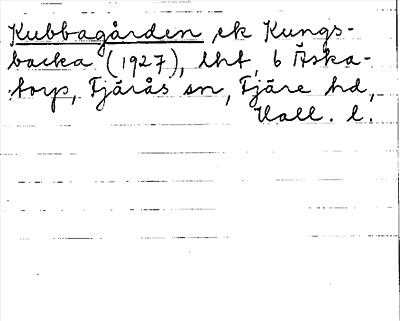 Kubbagården ek Kungs-
backa (1927), lht, 6 Äska-
torp, Fjärås sn, Fjäre hd,
Hall. l.